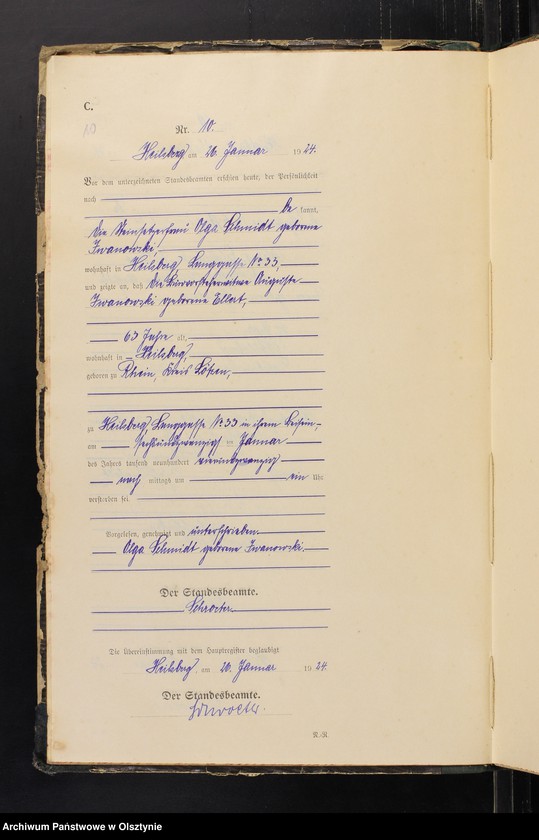 C.
10
Nr. 10.
Heilsberg am 26. Januar 1924.
Vor dem unterzeichneten Standesbeamten erschien heute, der Persönlichkeit
nach
be kannt,
die Steinsetzerfrau Olga Schmidt geborene
Iwanowski,
wohnhaft in Heilsberg, Langgasse No 33,
und zeigte an, daß die Auguste
Iwanowski geborene Ellert,
63 Jahre alt,
wohnhaft in Heilsberg,
geboren zu Rhein, Kreis Lötzen,
zu Heilsberg Langgasse No 33 in ihrem Beisein
am sechsundzwanzigsten Januar
des Jahres tausend neunhundert vierundzwanzig
nach mittags um ein Uhr
verstorben sei.
Vorgelesen, genehmigt und unterschrieben.
Olga Schmidt geborene Iwanowski.
Der Standesbeamte.
Schroeter.
Die Übereinstimmung mit dem Hauptregister beglaubigt
Heilsberg, am 26. Januar 1924.
Der Standesbeamte.
Schroeter.
Archiwum Państwowe w Olsztynie